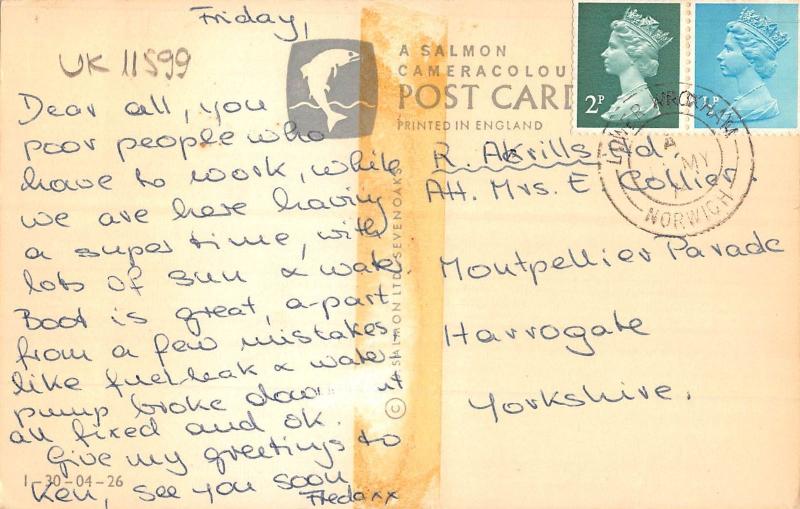 Friday,
UK 11599
Dear all, you
poor people who
have to work, while
we are here having
a super time, with
lots of sun & water.
Boat is great, a-part
from a few mistakes,
like fuel-leak & water-
pump broke down but
all fixed and ok.
Give my greetings to
Ken, see you soon
Fredaxx
1-30-04-26
A SALMON
CAMERACOLOU
POST CARD
PRINTED IN ENGLAND
© SALMON LTD SEVENOAKS
2P
½P
LOWER WROXHAM
MY
NORWICH
R. Akrills Ltd.
Att. Mrs. E. Collier.
Montpellier Parade
Harrogate
Yorkshire.